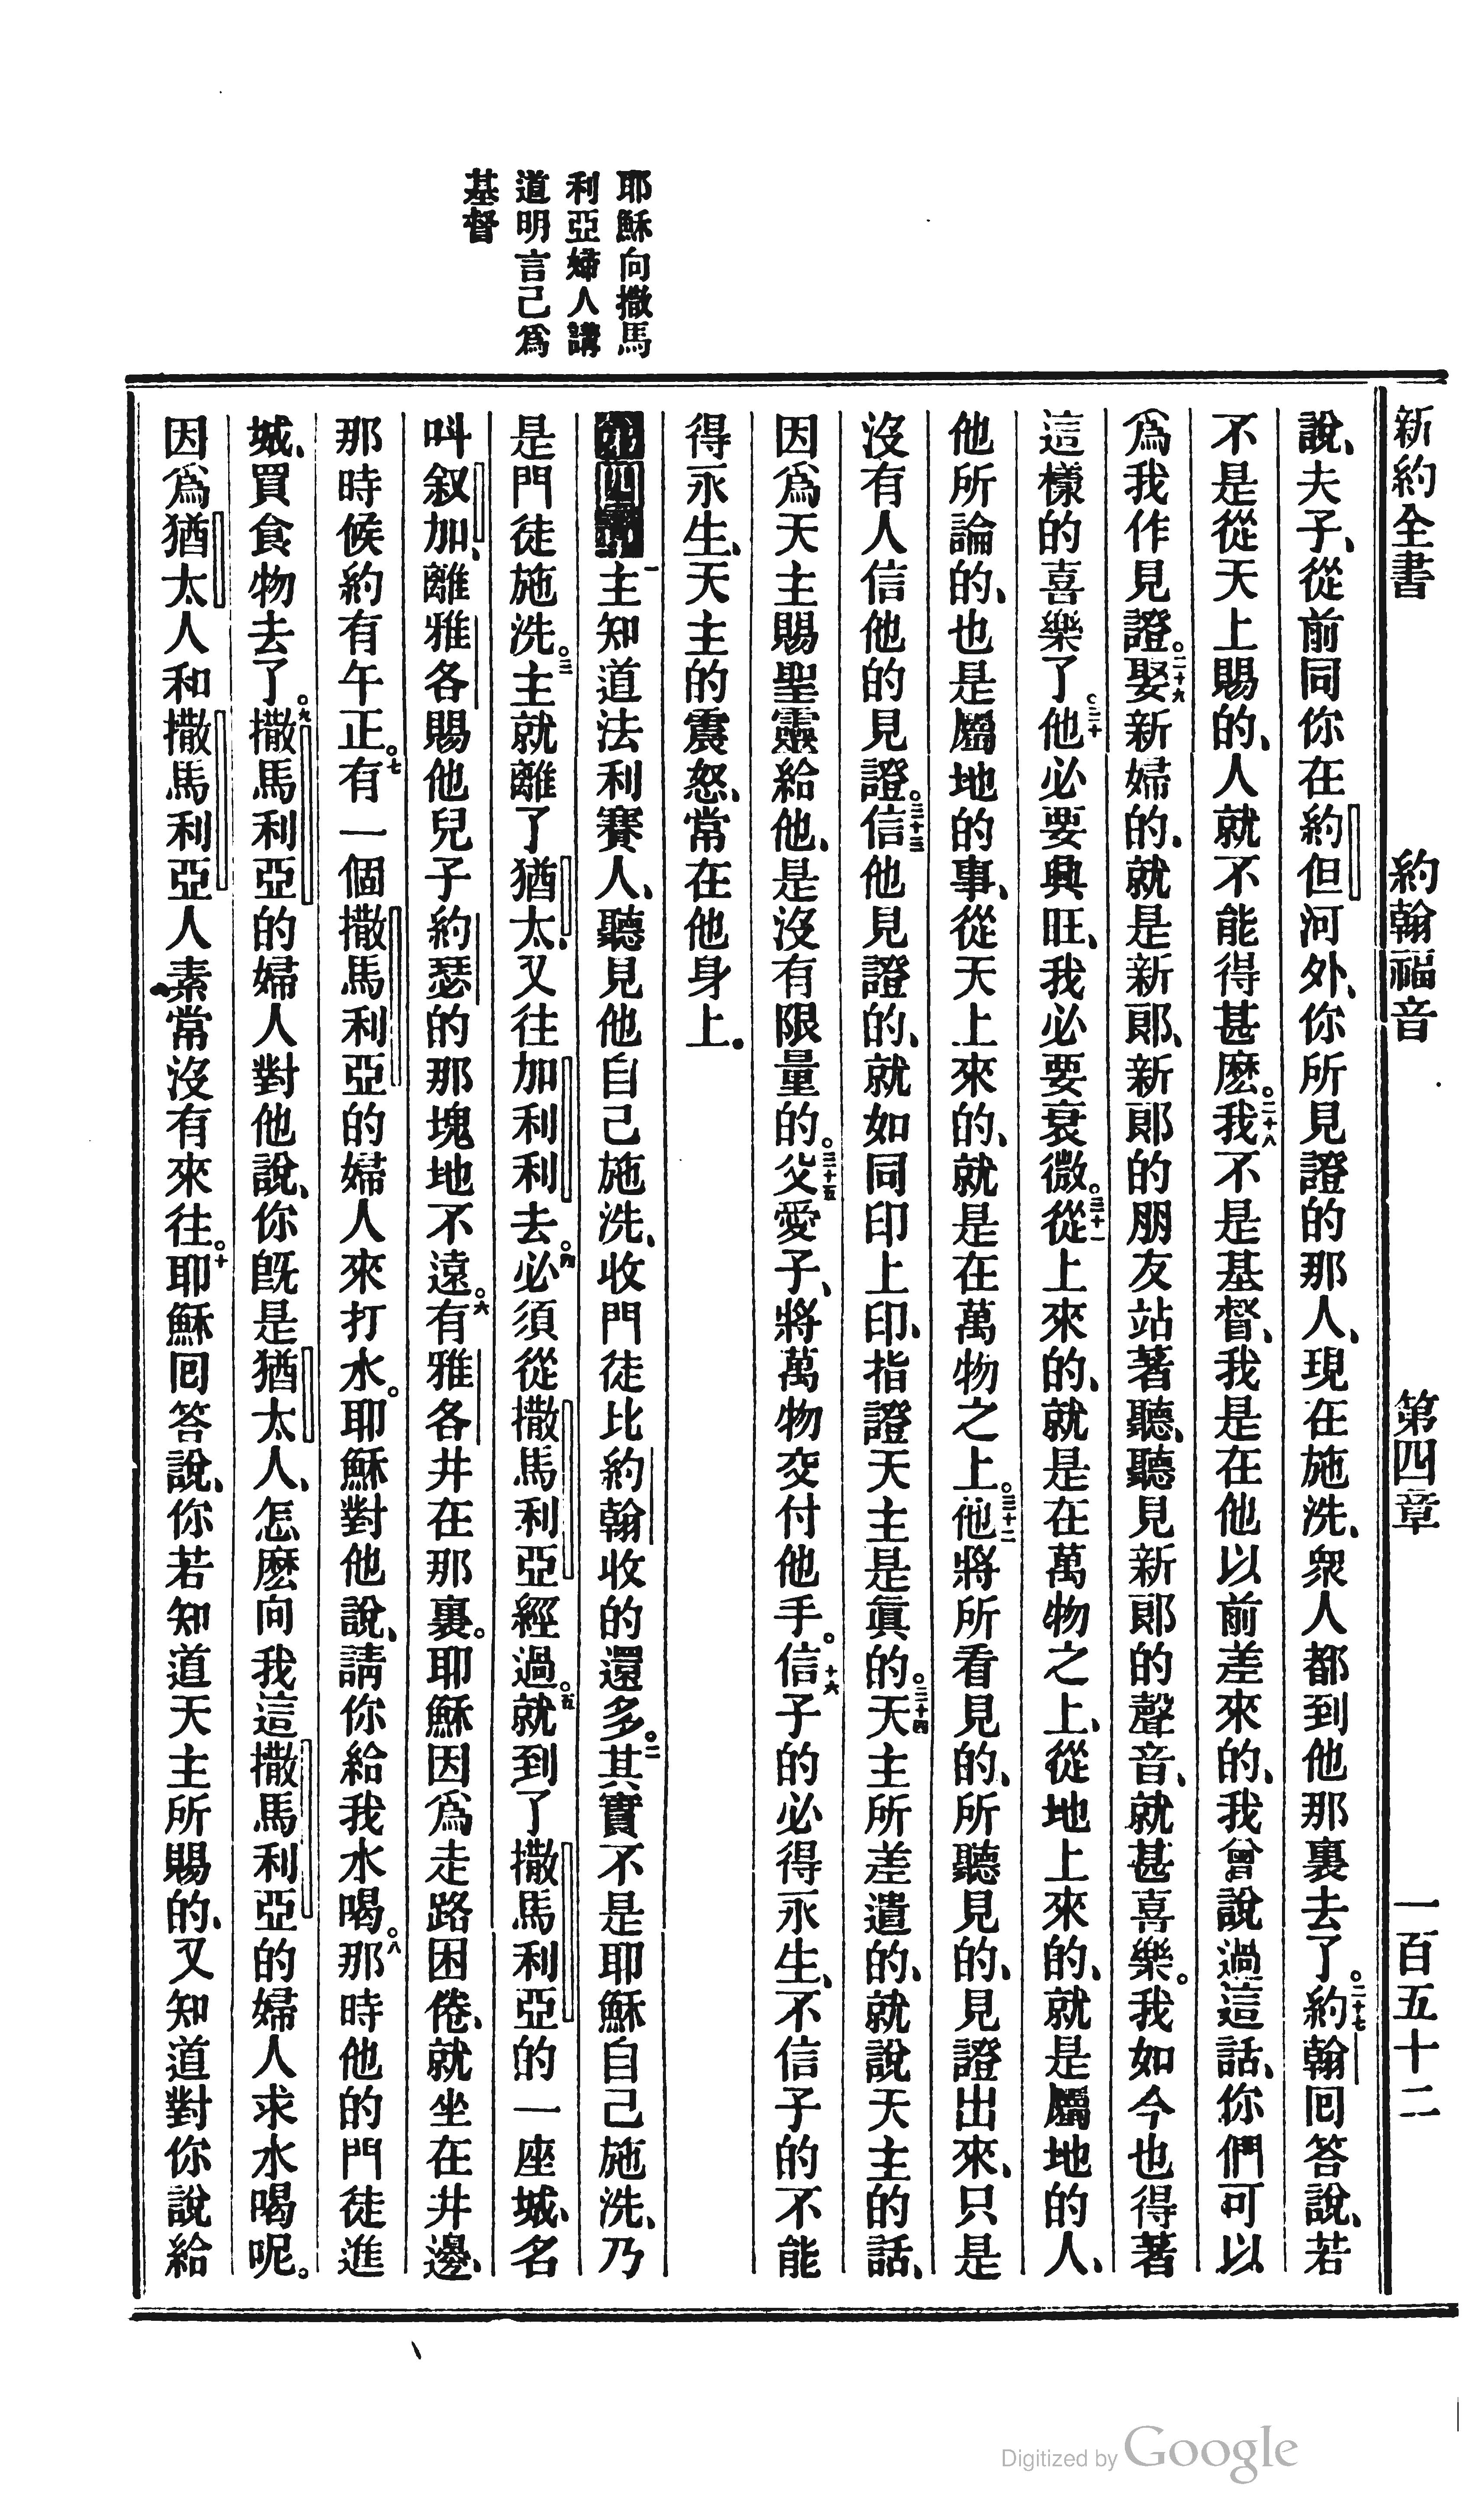 新約全書 約翰福音 第四章 一百五十二
說、夫子、從前同你在約但河外、你所見證的那人、現在施洗、衆人都到他那裏去了。二十七約翰回答說、若
不是從天上賜的、人就不能得甚麽。二十八我不是基督、我是在他以前差來的、我曾說過這話、你們可以
爲我作見證。二十九娶新婦的、就是新郎、新郎的朋友站著聽、聽見新郎的聲音、就甚喜樂。我如今也得著
這樣的喜樂了。三十他必要興旺、我必要衰微。三十一從上來的、就是在萬物之上、從地上來的、就是屬地的人、
他所論的、也是屬地的事、從天上來的、就是在萬物之上。三十二他將所看見的、所聽見的、見證出來、只是
沒有人信他的見證。三十三信他見證的、就如同印上印、指證天主是眞的。三十四天主所差遣的、就說天主的話、
因爲天主賜聖靈給他、是沒有限量的。三十五父愛子、將萬物交付他手。十六信子的必得永生、不信子的不能
得永生、天主的震怒、常在他身上。
耶穌向撒馬
利亞婦人講
道明言己爲
基督
第四章一主知道法利賽人、聽見他自己施洗、收門徒比約翰收的還多。二其實不是耶穌自己施洗、乃
是門徒施洗。三主就離了猶太、又往加利利去。四必須從撒馬利亞經過。五就到了撒馬利亞的一座城、名
叫叙加、離雅各賜他兒子約瑟的那塊地不遠。六有雅各井在那裏。耶穌因爲走路困倦、就坐在井邊、
那時候約有午正。七有一個撒馬利亞的婦人來打水。耶穌對他說、請你給我水喝。八那時他的門徒進
城、買食物去了。九撒馬利亞的婦人對他說、你旣是猶太人、怎麽向我這撒馬利亞的婦人求水喝呢。
因爲猶太人和撒馬利亞人素常沒有來往。十耶穌回答說、你若知道天主所賜的、又知道對你說給
Digitized by Google